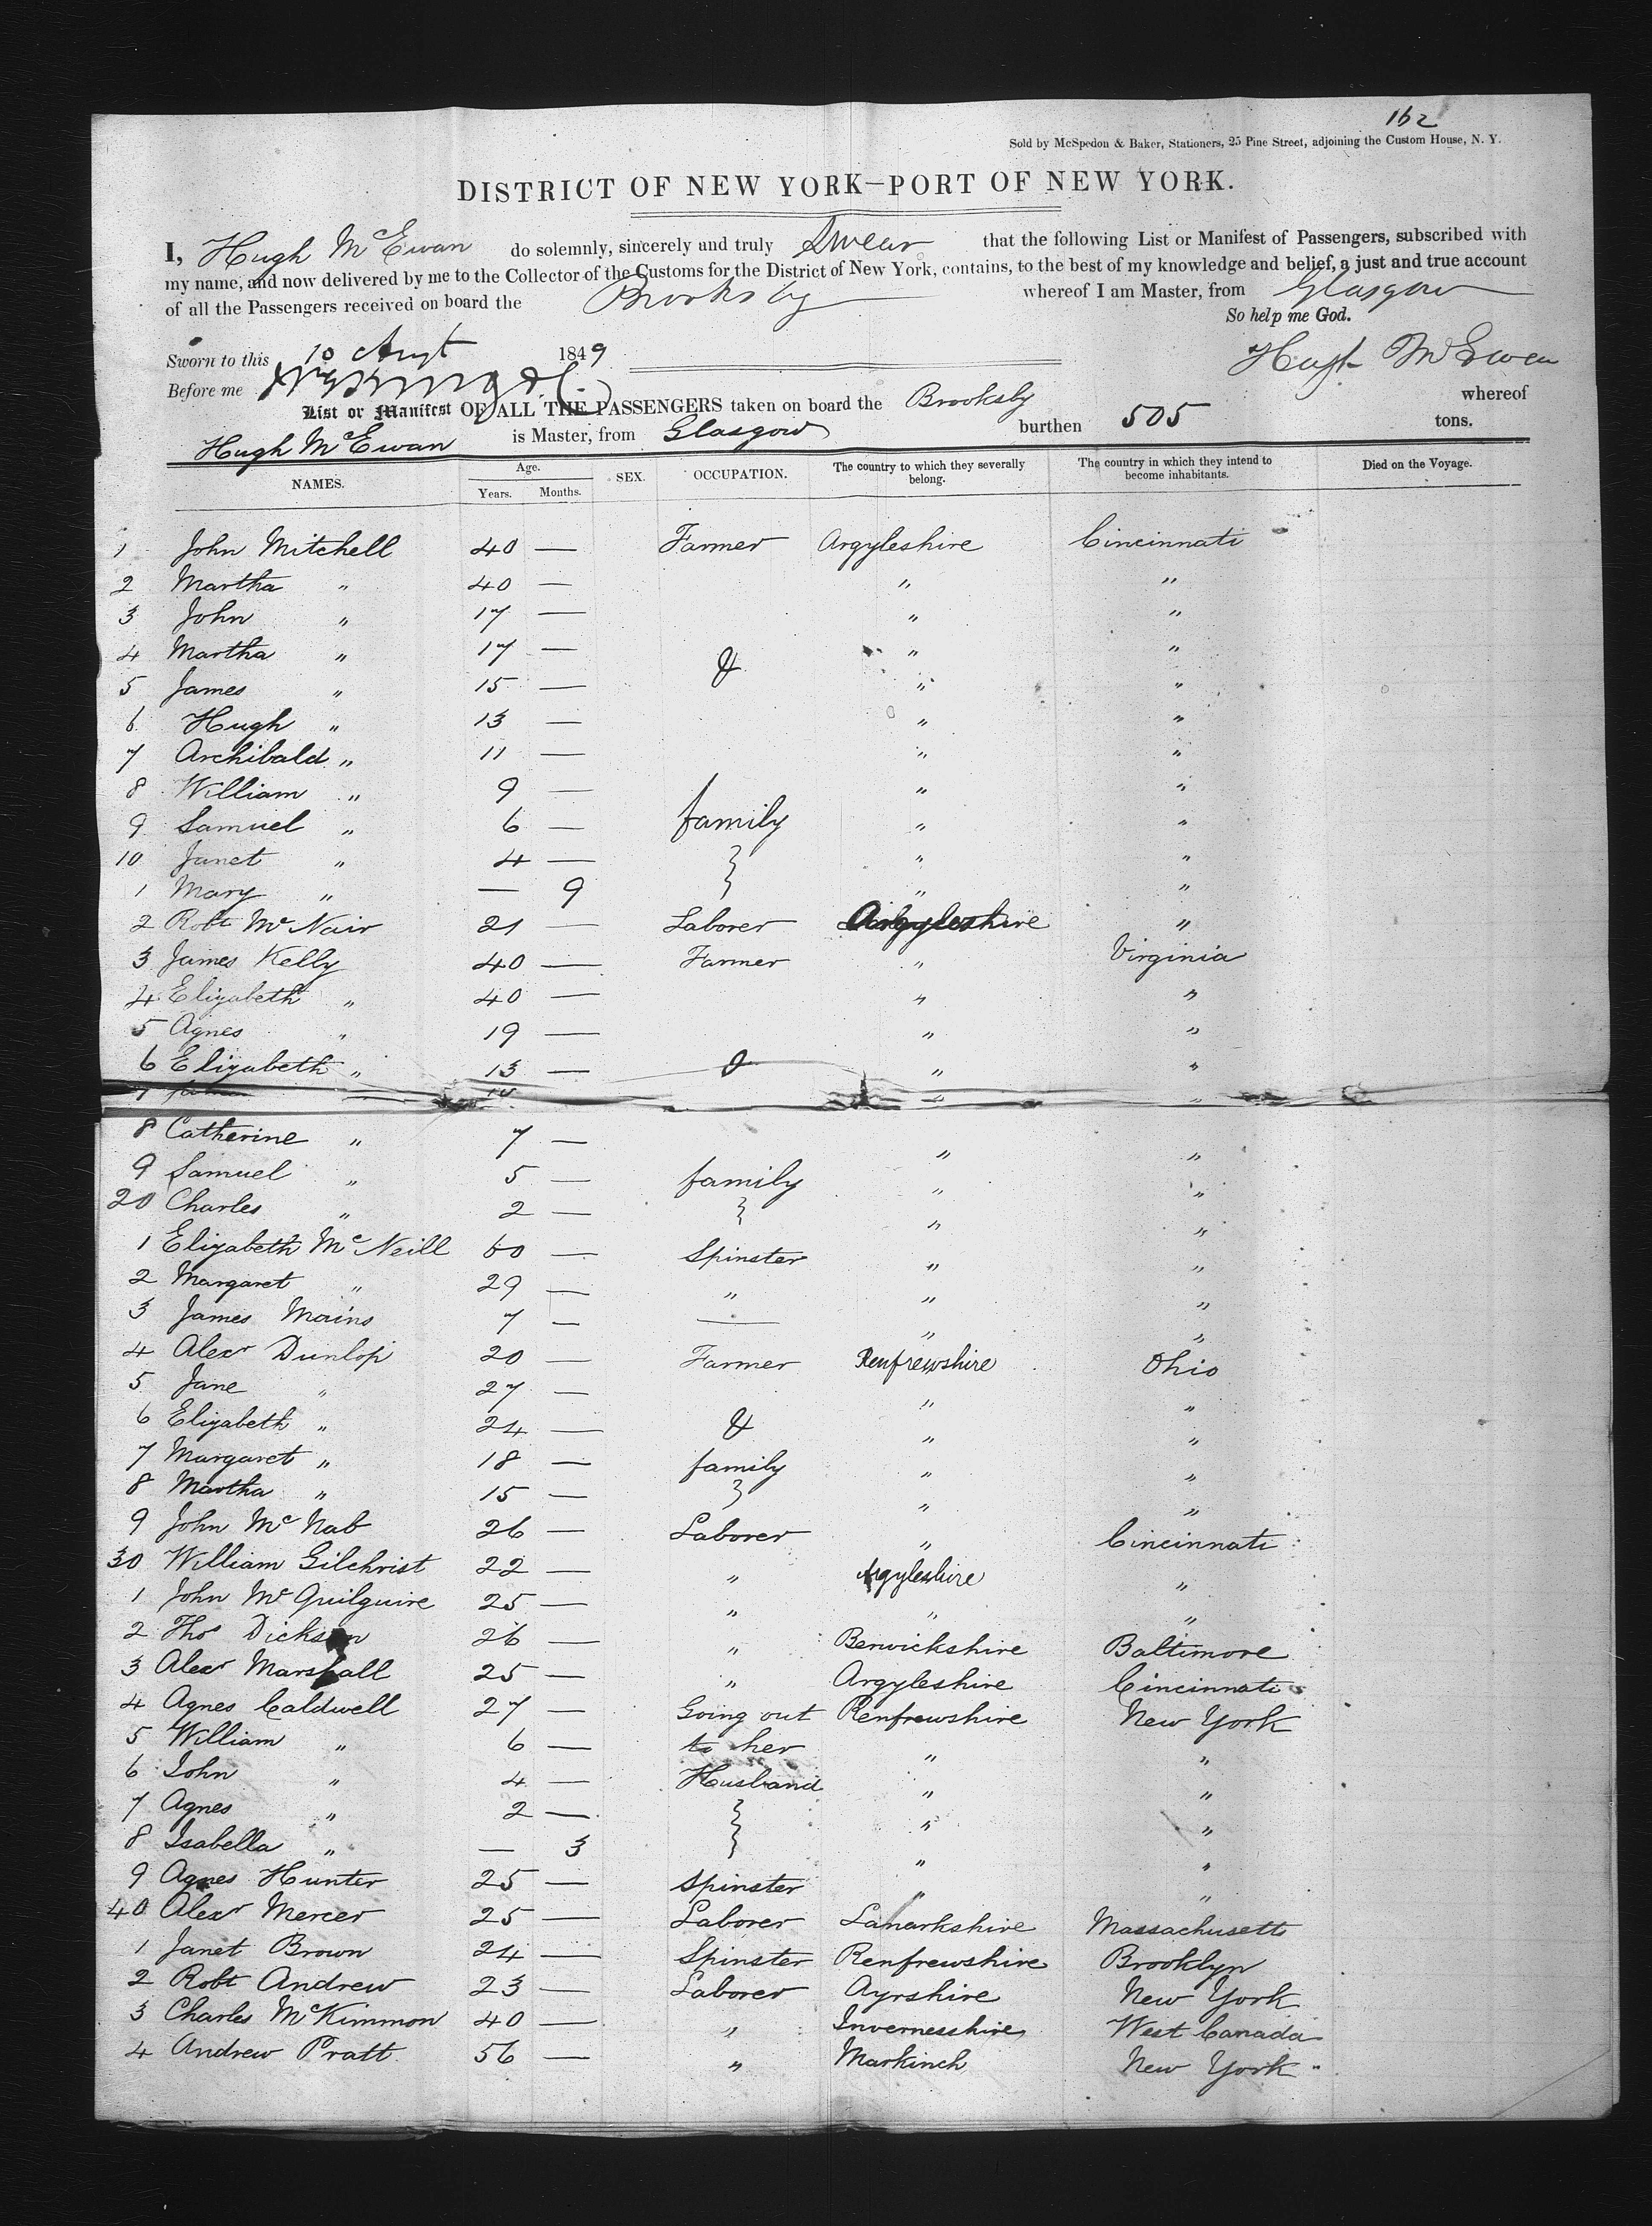 162
Sold by McSpedon & Baker, Stationers, 25 Pine Street, adjoining the Custom House, N. Y.
DISTRICT OF NEW YORK—PORT OF NEW YORK.
I, Hugh McEwan do solemnly, sincerely and truly Swear that the following List or Manifest of Passengers, subscribed with
my name, and now delivered by me to the Collector of the Customs for the District of New York, contains, to the best of my knowledge and belief, a just and true account
of all the Passengers received on board the Brooksby whereof I am Master, from Glasgow
So help me God.
Sworn to this 10 Augt 1849
Hugh McEwen
Before me
List or Manifest OF ALL THE PASSENGERS taken on board the Brooksby whereof
Hugh McEwan is Master, from Glasgow burthen 505 tons.
NAMES. Age. Years. Months. SEX. OCCUPATION. The country to which they severally belong. The country in which they intend to become inhabitants. Died on the Voyage.
1 John Mitchell 40 — Farmer Argyleshire Cincinnati
2 Martha " 40 — " "
3 John " 17 — " "
4 Martha " 17 — & " "
5 James " 15 — " "
6 Hugh " 13 — " "
7 Archibald " 11 — " "
8 William " 9 — " "
9 Samuel " 6 — family " "
10 Janet " 4 — } " "
1 Mary " — 9 } " "
2 Robt McNair 21 — Laborer Argyleshire "
3 James Kelly 40 — Farmer " Virginia
4 Elizabeth " 40 — " "
5 Agnes " 19 — " "
6 Elizabeth " 13 — & " "
7 " "
8 Catherine " 7 — " "
9 Samuel " 5 — family " "
20 Charles " 2 — } " "
1 Elizabeth McNeill 60 — Spinster " "
2 Margaret " 29 — " " "
3 James Mains 7 — — " "
4 Alexr Dunlop 20 — Farmer Renfrewshire Ohio
5 Jane " 27 — " "
6 Elizabeth " 24 — & " "
7 Margaret " 18 — family " "
8 Martha " 15 — } " "
9 John McNab 26 — Laborer " Cincinnati
30 William Gilchrist 22 — " Argyleshire "
1 John McQuilguire 25 — " " "
2 Thos Dickson 26 — " Berwickshire Baltimore
3 Alexr Marshall 25 — " Argyleshire Cincinnati
4 Agnes Caldwell 27 — Going out Renfrewshire New York
5 William " 6 — to her " "
6 John " 4 — Husband " "
7 Agnes " 2 — } " "
8 Isabella " — 3 } " "
9 Agnes Hunter 25 — Spinster " "
40 Alexr Mercer 25 — Laborer Lanarkshire Massachusetts
1 Janet Brown 24 — Spinster Renfrewshire Brooklyn
2 Robt Andrew 23 — Laborer Ayrshire New York
3 Charles McKimmon 40 — " Invernesshire West Canada
4 Andrew Pratt 56 — " Markinch New York "